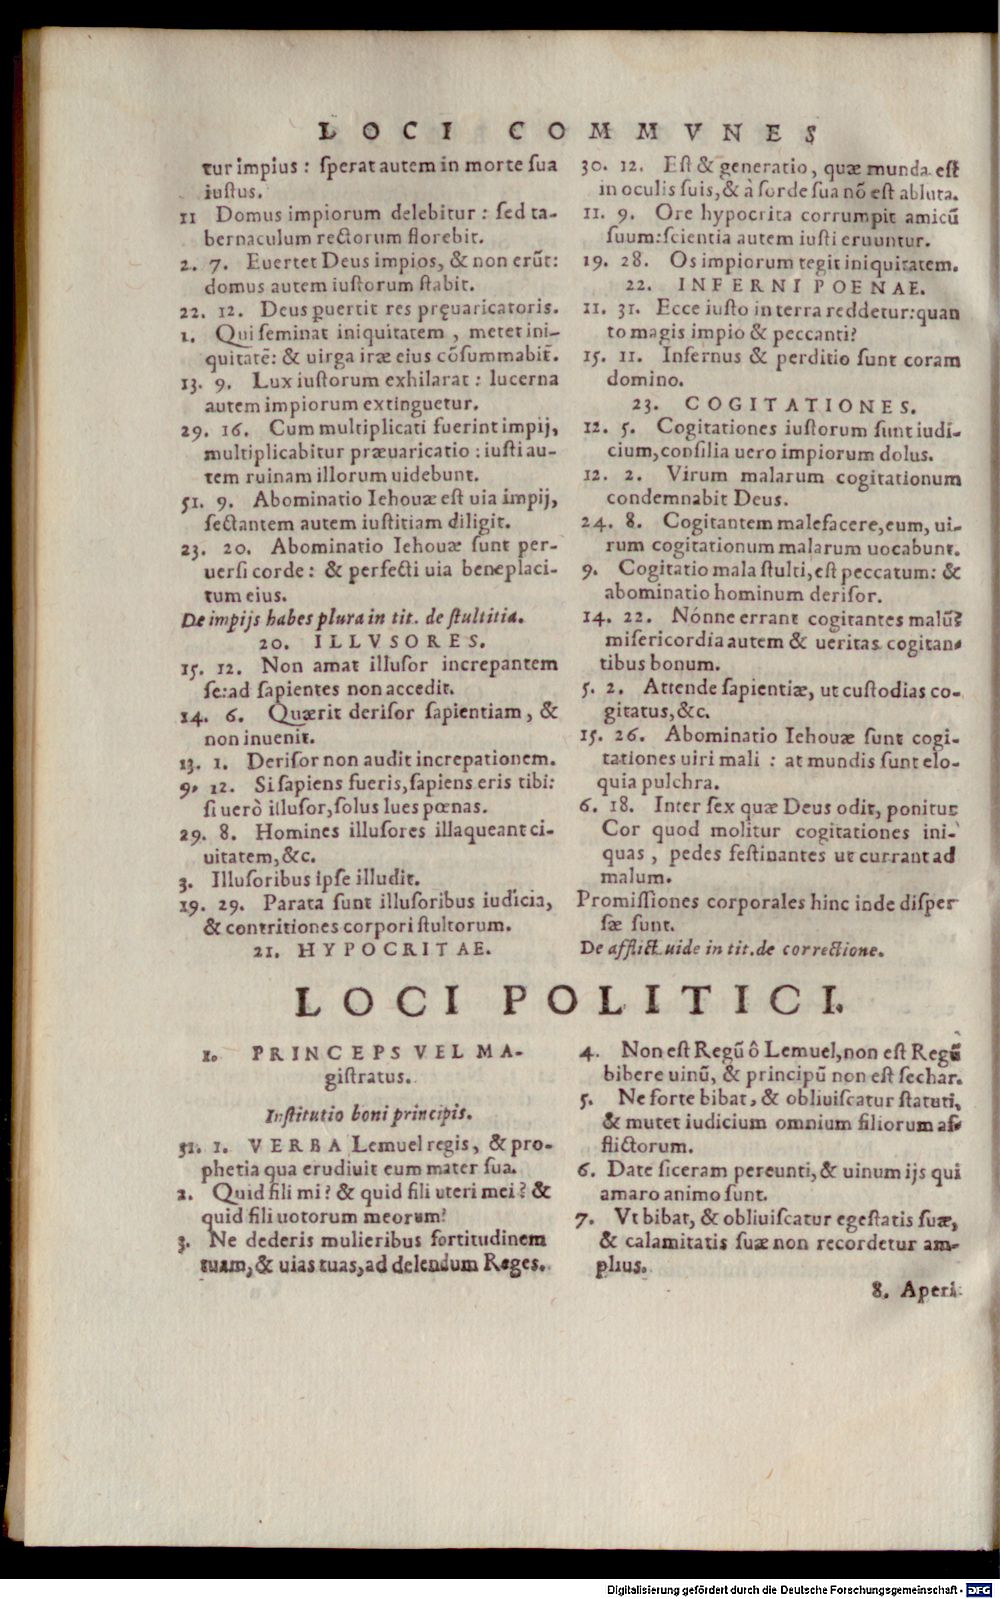 LOCI COMMVNES
tur impius : sperat autem in morte sua
iustus.
11 Domus impiorum delebitur : sed ta-
bernaculum rectorum florebit.
2. 7. Euertet Deus impios, & non erūt:
domus autem iustorum stabit.
22. 12. Deus ꝑuertit res pręuaricatoris.
1. Qui seminat iniquitatem , metet ini-
quitatē: & uirga iræ eius cōsummabit̄.
13. 9. Lux iustorum exhilarat : lucerna
autem impiorum extinguetur.
29. 16. Cum multiplicati fuerint impij,
multiplicabitur præuaricatio : iusti au-
tem ruinam illorum uidebunt.
51. 9. Abominatio Iehouæ est uia impij,
sectantem autem iustitiam diligit.
23. 20. Abominatio Iehouæ sunt per-
uersi corde : & perfecti uia beneplaci-
tum eius.
De impijs habes plura in tit. de stultitia.
20. ILLVSORES.
15. 12. Non amat illusor increpantem
se:ad sapientes non accedit.
14. 6. Quærit derisor sapientiam , &
non inuenit.
13. 1. Derisor non audit increpationem.
9. 12. Si sapiens fueris,sapiens eris tibi:
si uerò illusor,solus lues pœnas.
29. 8. Homines illusores illaqueant ci-
uitatem,&c.
3. Illusoribus ipse illudit.
19. 29. Parata sunt illusoribus iudicia,
& contritiones corpori stultorum.
21. HYPOCRITAE.
30. 12. Est & generatio, quæ munda est
in oculis suis,& à sorde sua nō est abluta.
11. 9. Ore hypocrita corrumpit amicū
suum:scientia autem iusti eruuntur.
19. 28. Os impiorum tegit iniquitatem.
22. INFERNI POENAE.
11. 31. Ecce iusto in terra reddetur:quan
to magis impio & peccanti?
15. 11. Infernus & perditio sunt coram
domino.
23. COGITATIONES.
12. 5. Cogitationes iustorum sunt iudi-
cium,consilia uero impiorum dolus.
12. 2. Virum malarum cogitationum
condemnabit Deus.
24. 8. Cogitantem malefacere,eum, ui-
rum cogitationum malarum uocabunt.
9. Cogitatio mala stulti,est peccatum: &
abominatio hominum derisor.
14. 22. Nónne errant cogitantes malū?
misericordia autem & ueritas cogitan-
tibus bonum.
5. 2. Attende sapientiæ, ut custodias co-
gitatus,&c.
15. 26. Abominatio Iehouæ sunt cogi-
tationes uiri mali : at mundis sunt elo-
quia pulchra.
6. 18. Inter sex quæ Deus odit, ponitur
Cor quod molitur cogitationes ini-
quas , pedes festinantes ut currant ad
malum.
Promissiones corporales hinc inde disper
sæ sunt.
De afflict.uide in tit.de correctione.
LOCI POLITICI.
1. PRINCEPS VEL MA-
gistratus.
Institutio boni principis.
31. 1. VERBA Lemuel regis, & pro-
phetia qua erudiuit eum mater sua.
2. Quid fili mi? & quid fili uteri mei? &
quid fili uotorum meorum?
3. Ne dederis mulieribus fortitudinem
tuam,& uias tuas,ad delendum Reges.
4. Non est Regū ô Lemuel,non est Regū
bibere uinū, & principū non est sechar.
5. Ne forte bibat, & obliuiscatur statuti,
& mutet iudicium omnium filiorum af-
flictorum.
6. Date siceram pereunti,& uinum ijs qui
amaro animo sunt.
7. Vt bibat, & obliuiscatur egestatis suæ,
& calamitatis suæ non recordetur am-
plius.
8. Aperi
Digitalisierung gefördert durch die Deutsche Forschungsgemeinschaft - DFG